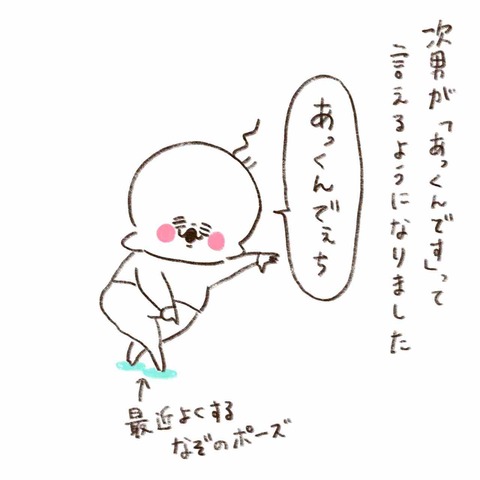 次男が「あっくんです」って
言えるようになりました
あっくんでぇち
最近よくする
なぞのポーズ